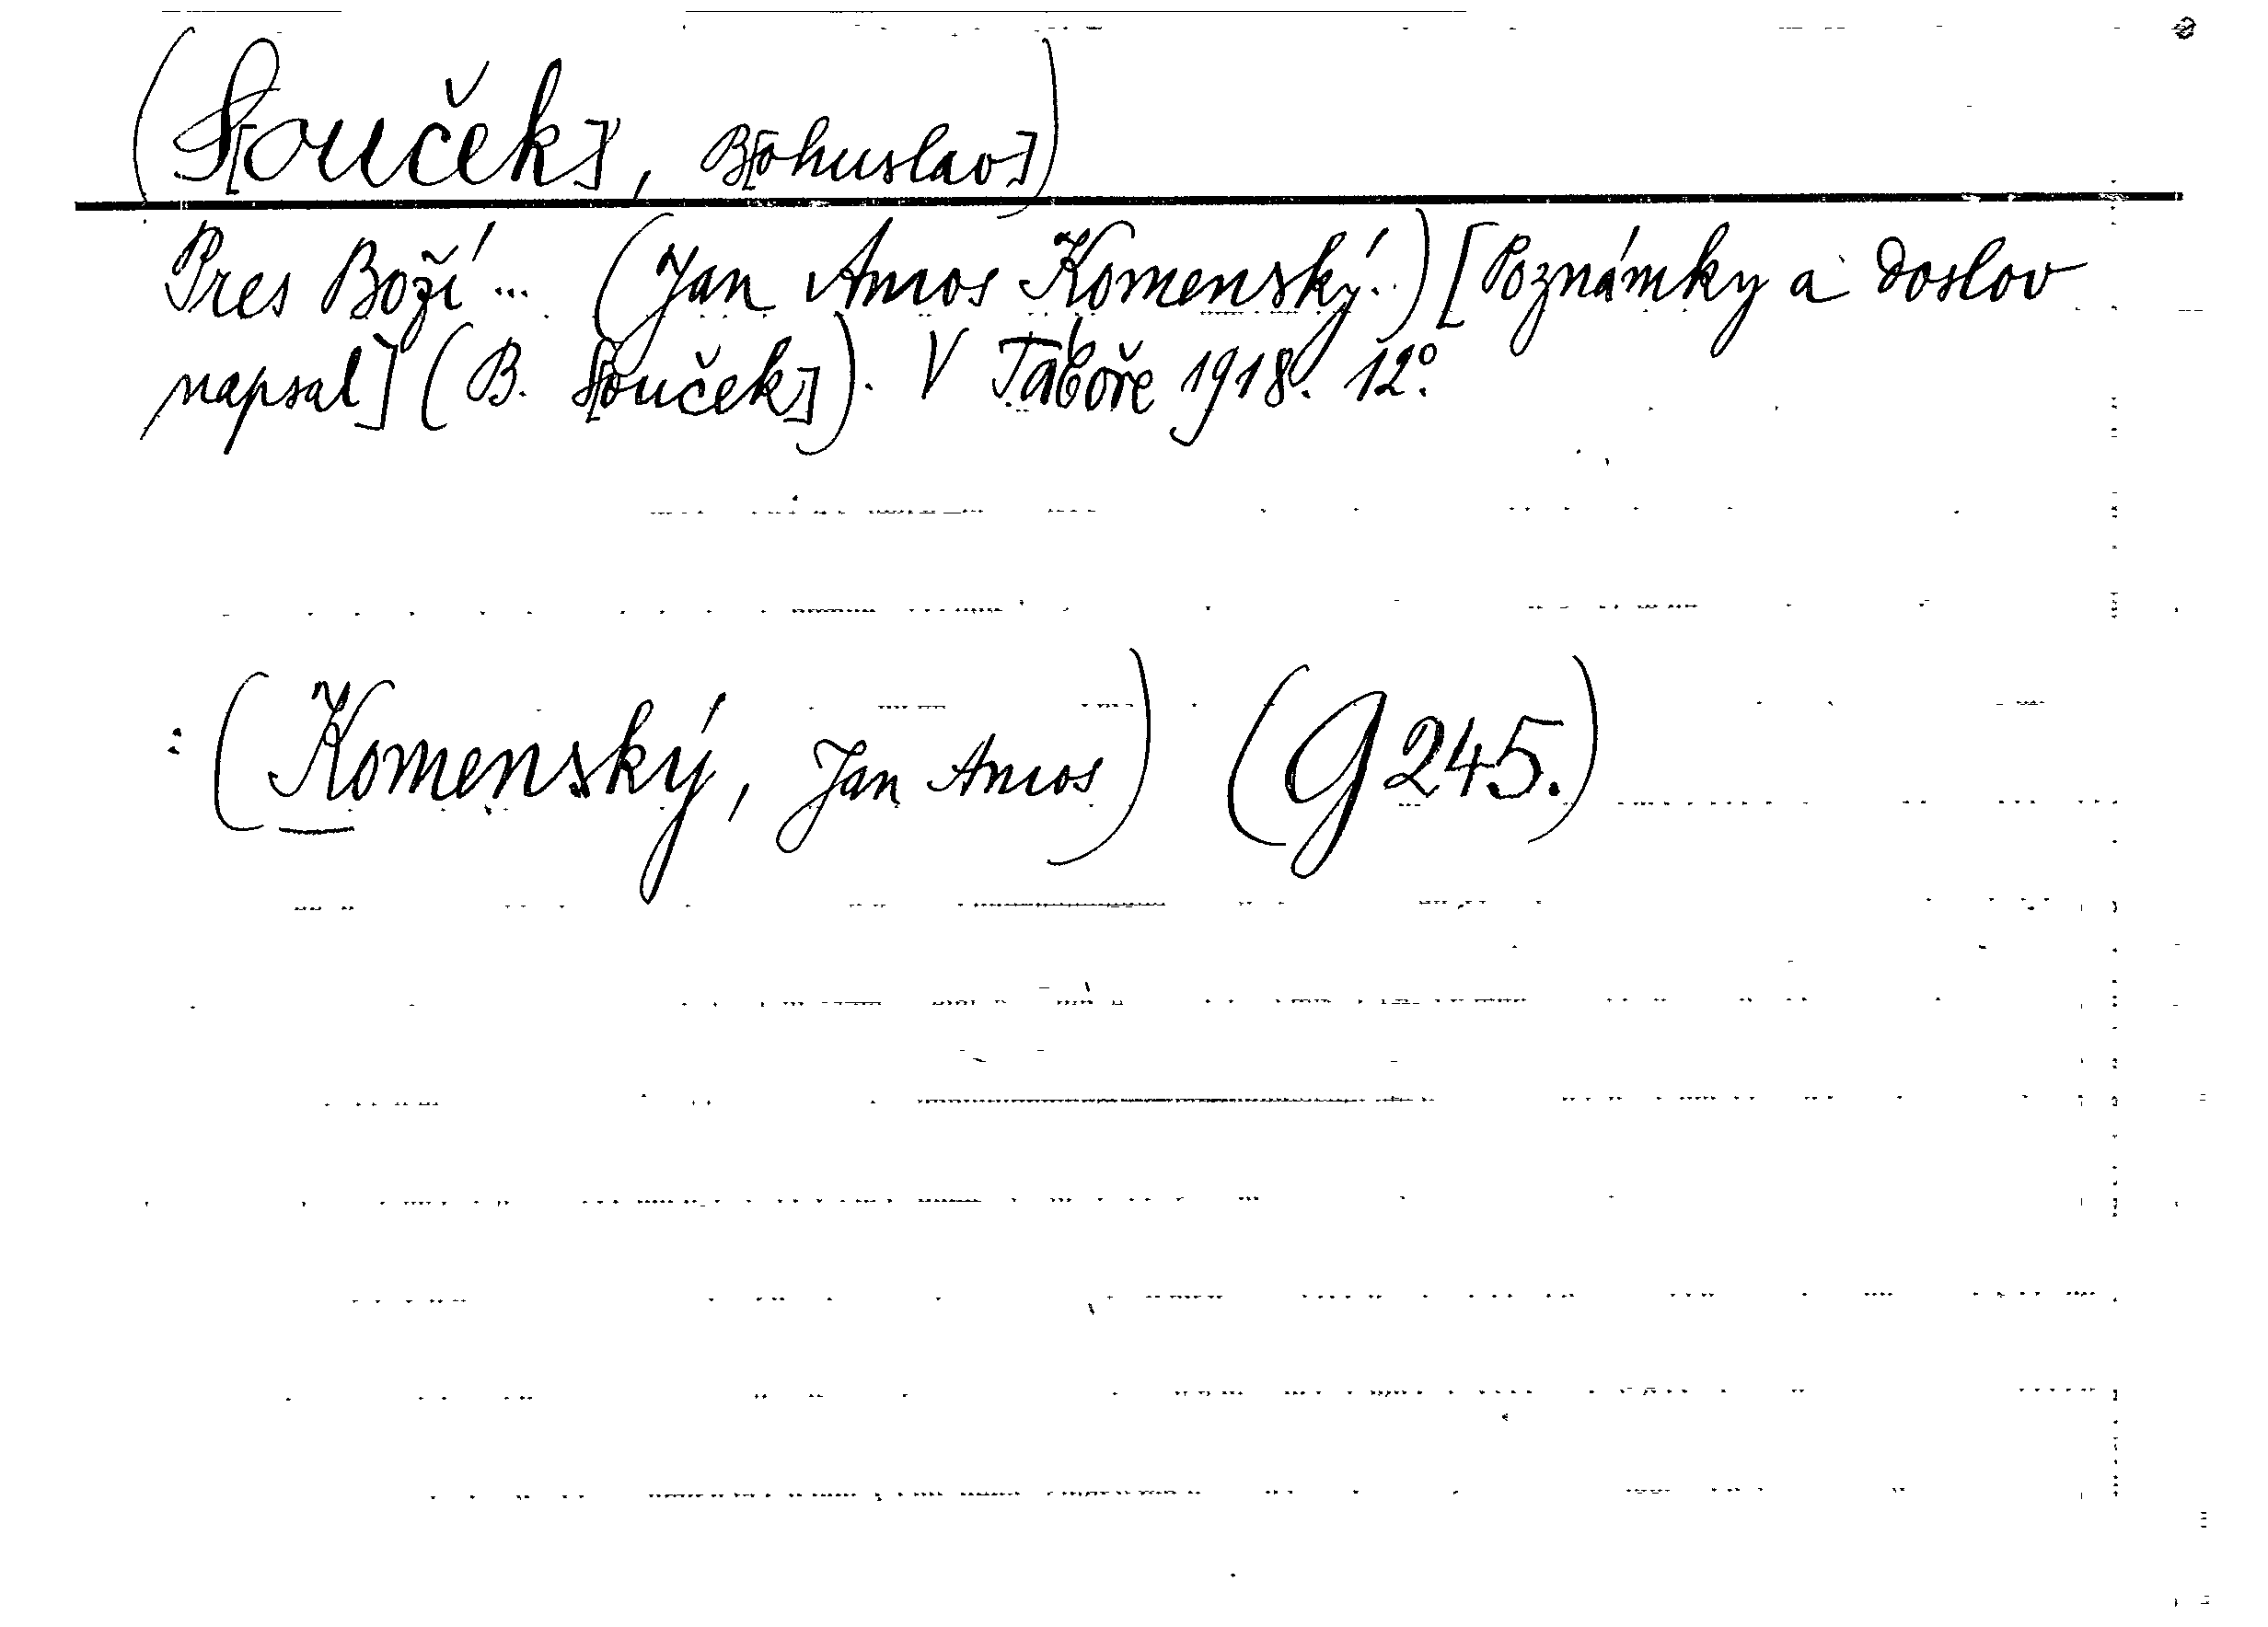 (S[ouček], B[ohuslav])
Pres Boží ... (Jan Amos Komenský.) [Poznámky a doslov
napsal] (B. S[ouček]). V Táboře 1918. 12°.
: (Komenský, Jan Amos) (G 245.)